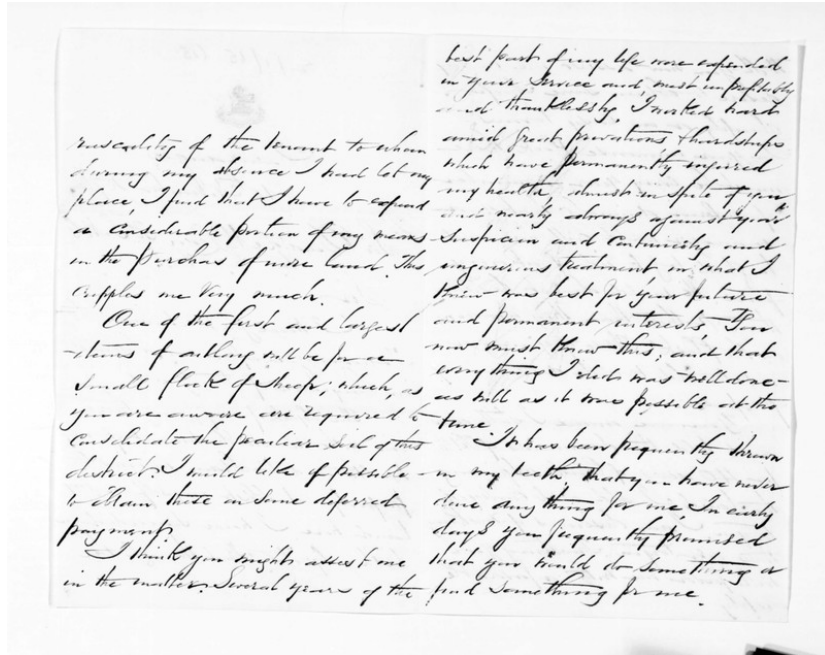 rascality of the tenant to whom
during my absence I had let my
place, I find that I have to expend
a considerable portion of my means
in the purchas of more land. This
cripples me very much.
One of the first and largest
items of outlay will be for a
small flock of sheep; which, as
you are aware are required to
consolidate the peculiar soil of this
district. I would like if possible
to obtain these on some deferred
payment.
I think you might assist me
in the matter. Several years of the
best part of my life were expended
in your service and, most unprofitably
and thanklessly, I worked hard
amid great privations, & hardships
which have permanently injured
my health, almost in spite of you,
and nearly always against your
suspicion and continuously and
ungenerous treatment in what I
knew was best for your future
and permanent interests. You
now must know this; and that
everything I did was well done -
as well as it was possible at the
time.
It has been frequently thrown
in my teeth, that you have never
done any thing for me. In early
days you frequently promised
that you would do something or
find something for me.